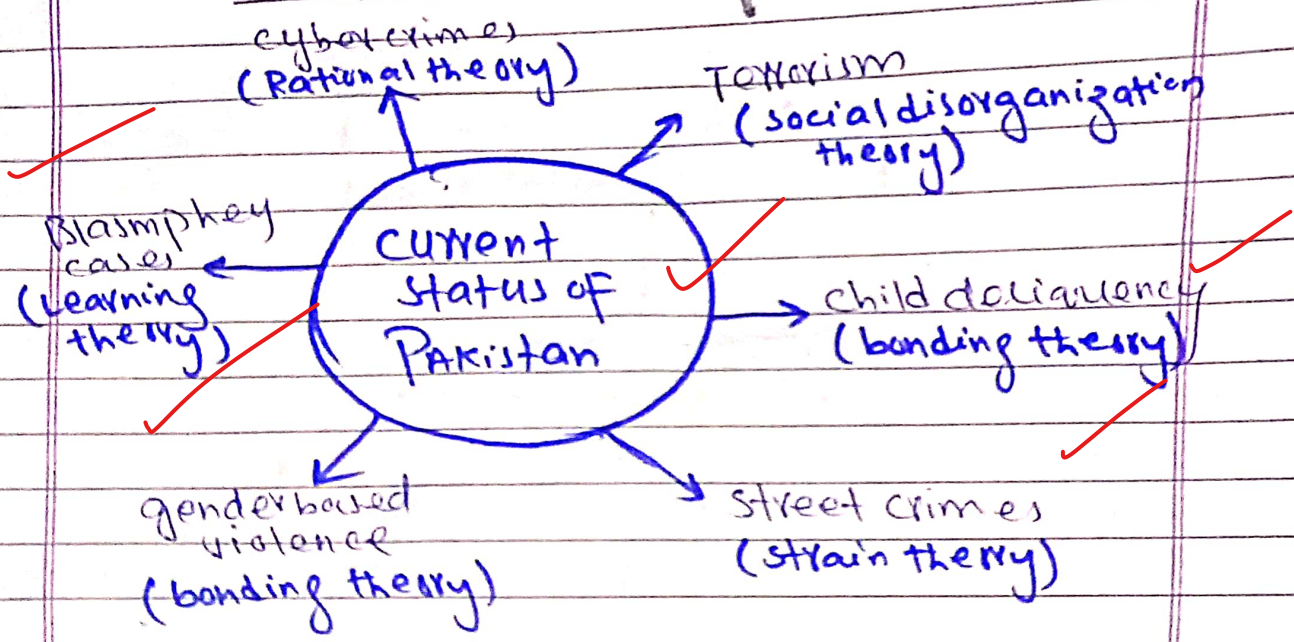 cyber crimes
(Rational theory)
Terrorism
(social disorganization
theory)
Blasmphey
cases
(Learning
theory)
current
status of
PAKistan
child deliquency
(bonding theory)
genderbased
violence
(bonding theory)
street crimes
(strain theory)